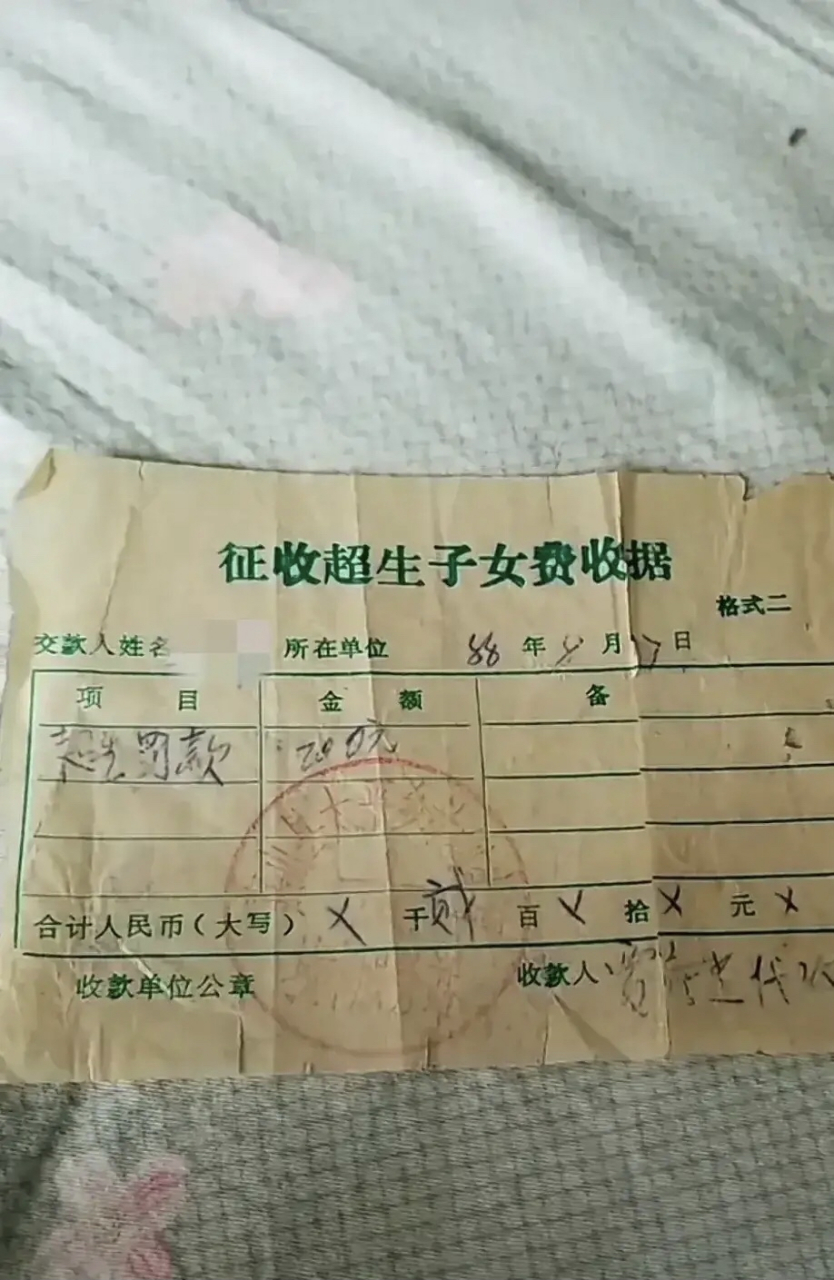 征收超生子女费收据
格式二
交款人姓名 所在单位 88年8月17日
项目 金额 备
超生罚款 200元
合计人民币（大写）X千贰百X拾X元X
收款单位公章 收款人 代收